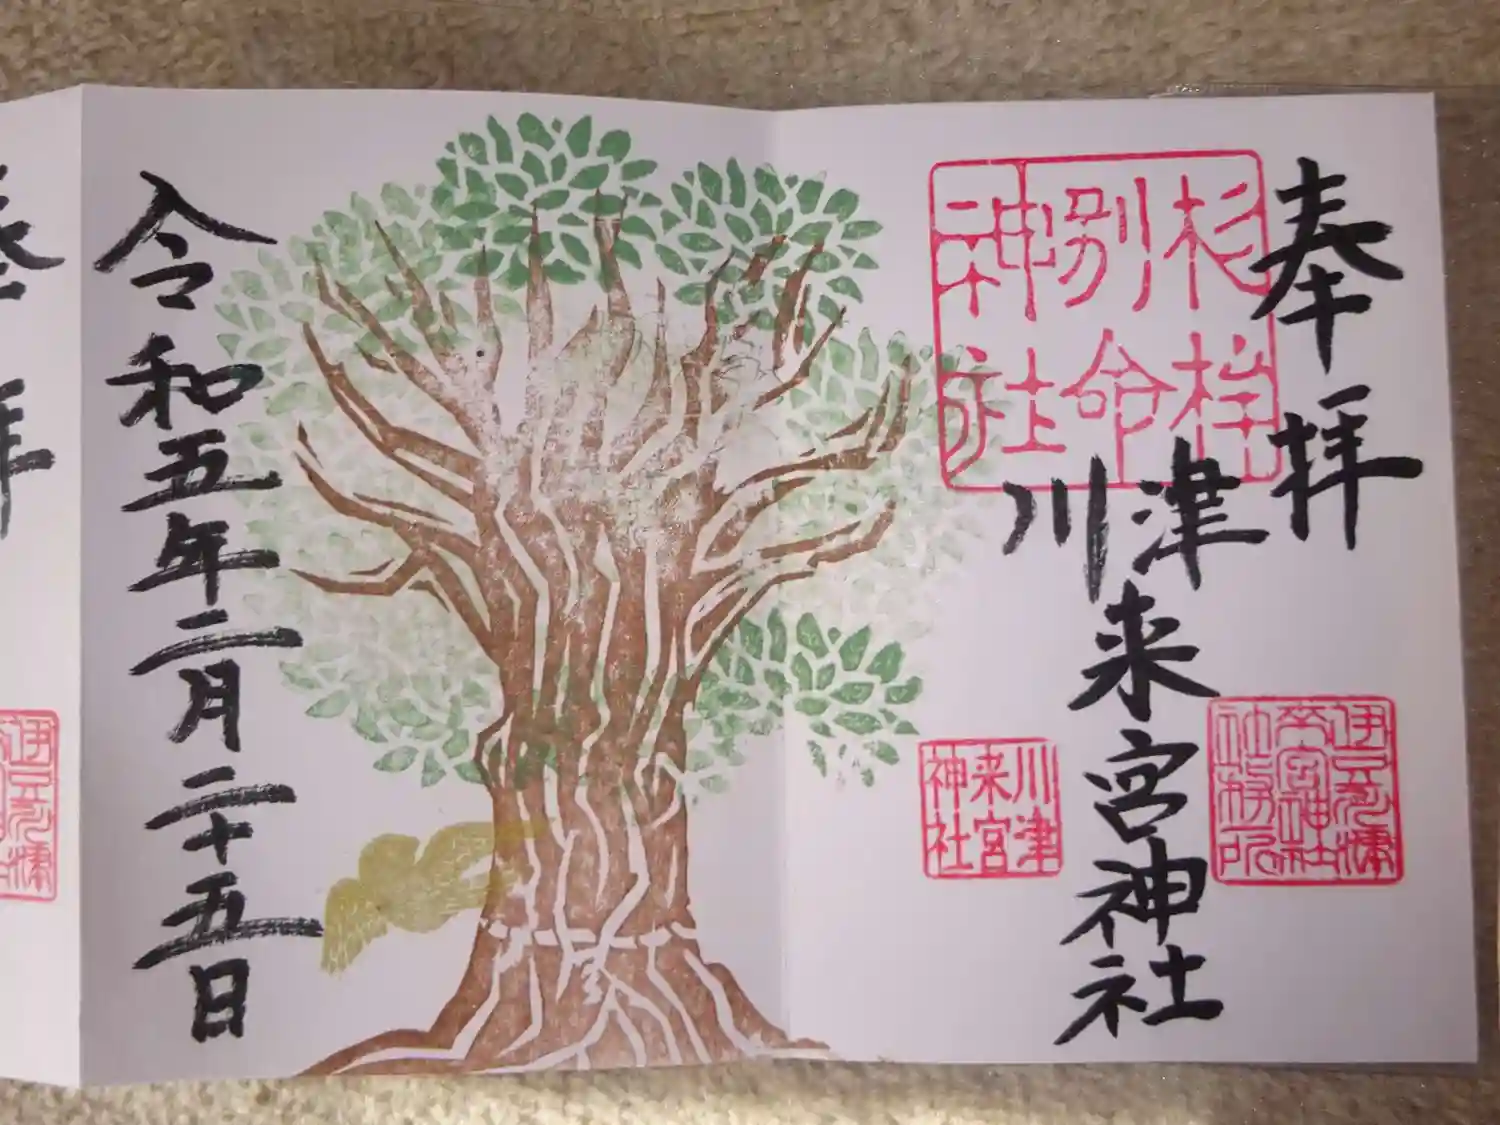 奉拝
杉桙
別命
神社
川津
来宮神社
伊豆濱
来宮神社
社務所
川津
来宮
神社
令和五年二月二十五日